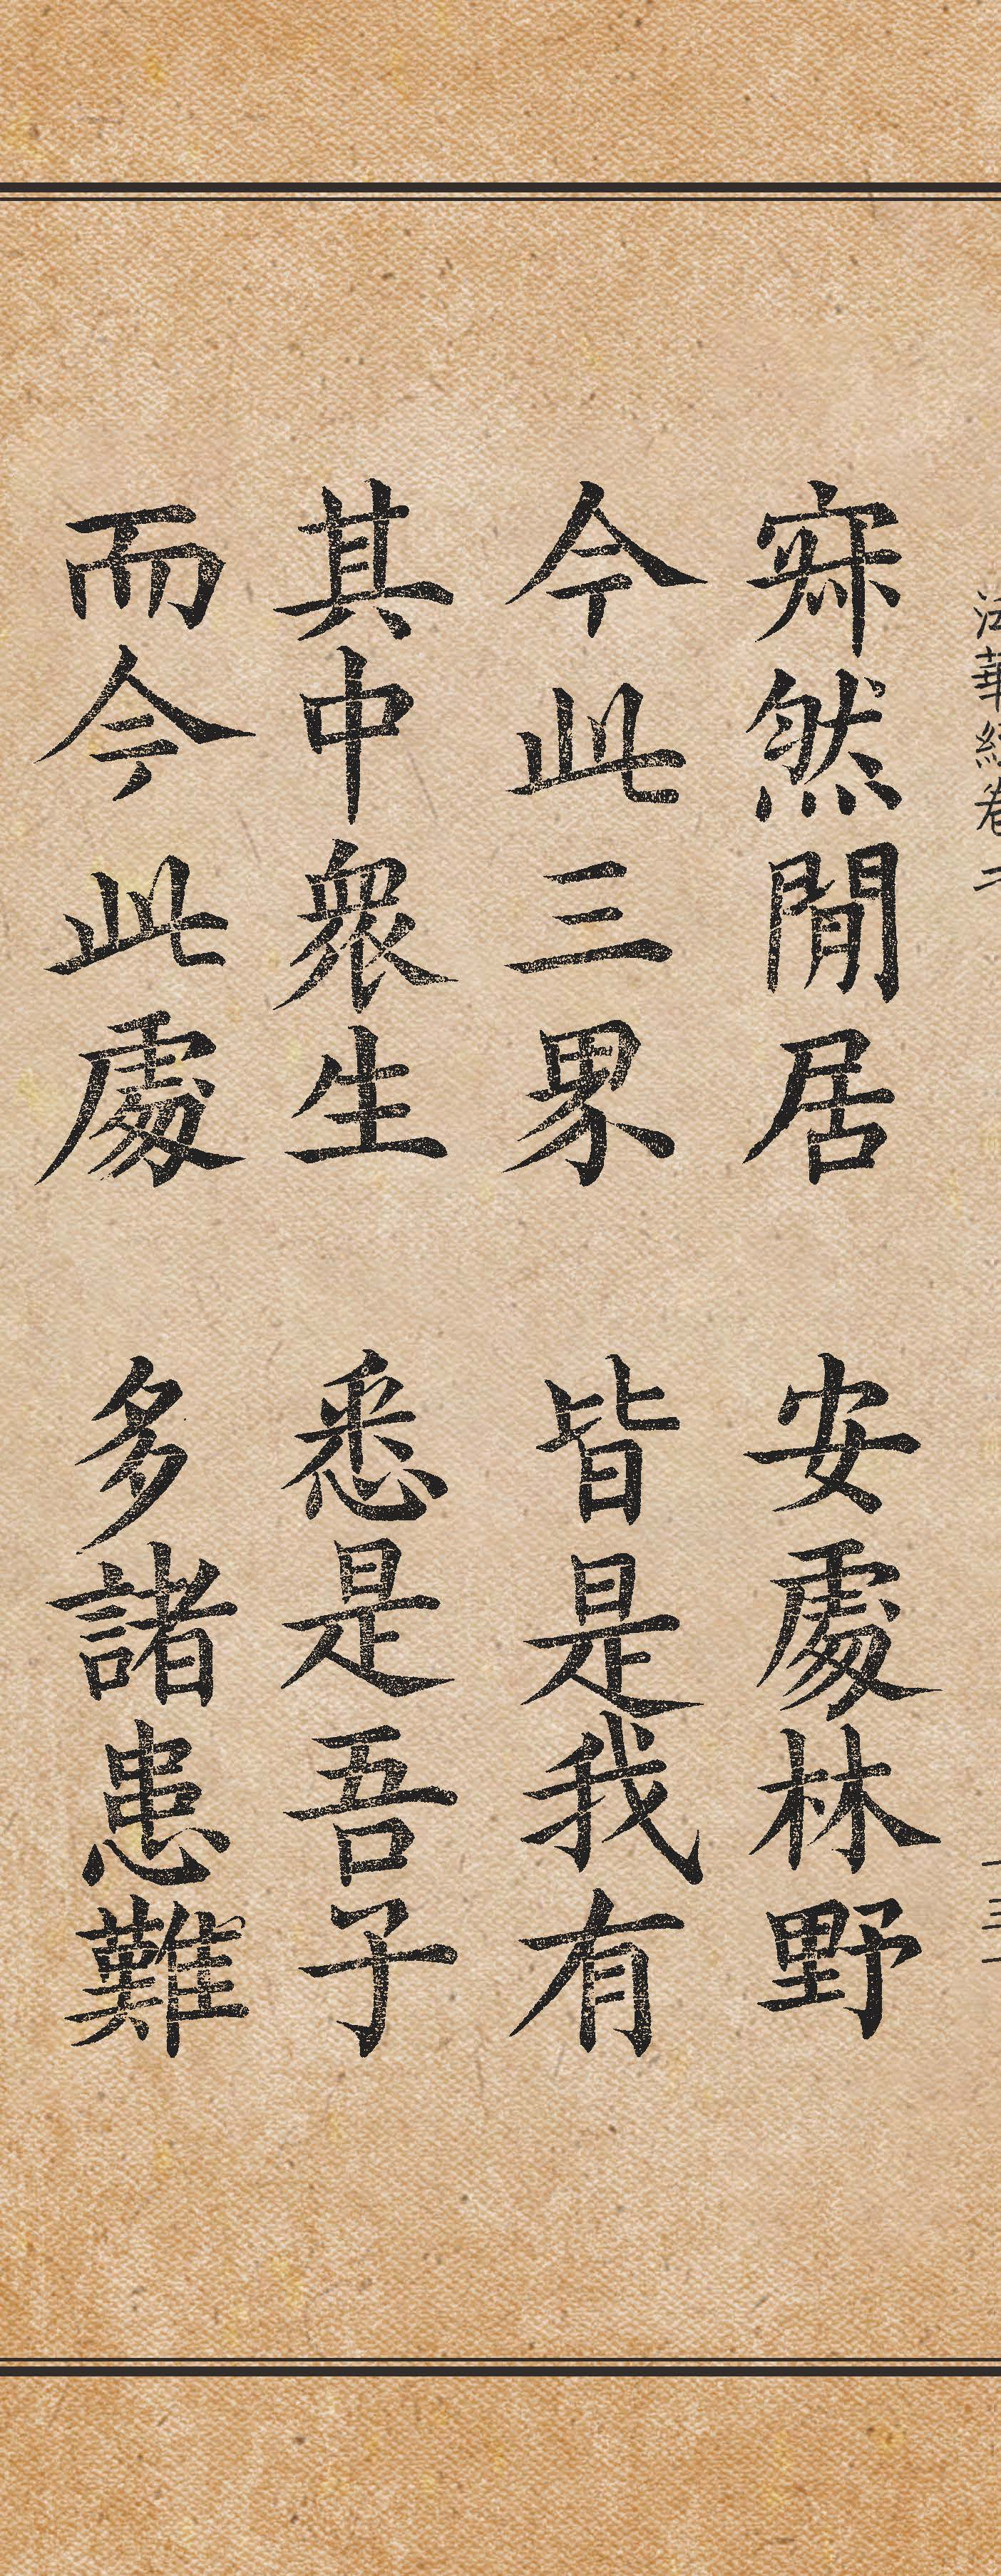 法華經卷二
十三
寂然閒居 安處林野
今此三界 皆是我有
其中眾生 悉是吾子
而今此處 多諸患難